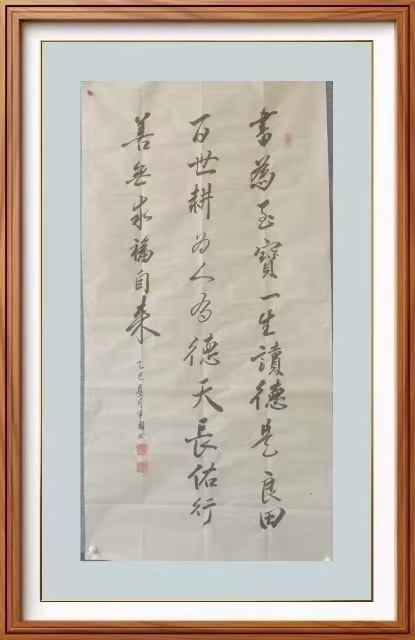 書為至寶一生讀德是良田
百世耕为人為德天長佑行
善無求福自来
乙巳夏月